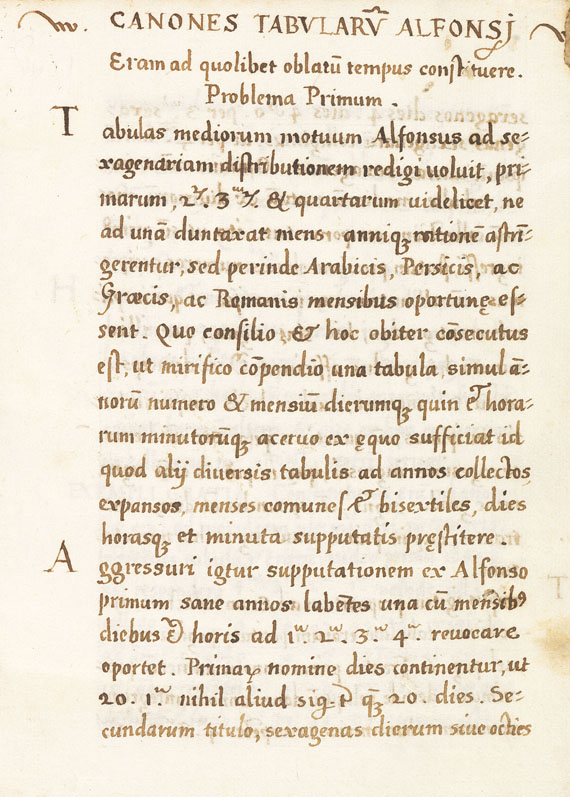 CANONES TABVLARV̄ ALFONSJ
Eram ad quolibet oblatū tempus constituere.
Problema Primum.
Tabulas mediorum motuum Alfonsus ad se-
xagenariam distributionem redigi voluit, pri-
marum, 2ꝝ. 3ꝝ & quartarum uidelicet, ne
ad unā duntaxat mens anniqꝫ rationē astrī-
gerentur, sed perinde Arabicis, Persicis, ac
Græcis, ac Romanis mensibus oportunę es-
sent. Quo consilio & hoc obiter cōsecutus
est, ut mirifico cōpendio una tabula simul ā-
norū numero & mensiū dierumqꝫ quin & hora-
rum minutorūqꝫ aceruo ex ęquo sufficiat id
quod alij diversis tabulis ad annos collectos
expansos, menses comunes & bisextiles, dies
horasqꝫ et minuta supputatis pręstitere.
Aggressuri igtur supputationem ex Alfonso
primum sane annos labentes una cū mensibꝰ
diebus & horis ad 1ͫ. 2ͫ. 3ͫ. 4ͫ. revocare
oportet. Primaꝝ nomine dies continentur, ut
20. 1ͫ nihil aliud sig. qꝫ 20. dies. Se-
cundarum titulo, sexagenas dierum siue octies